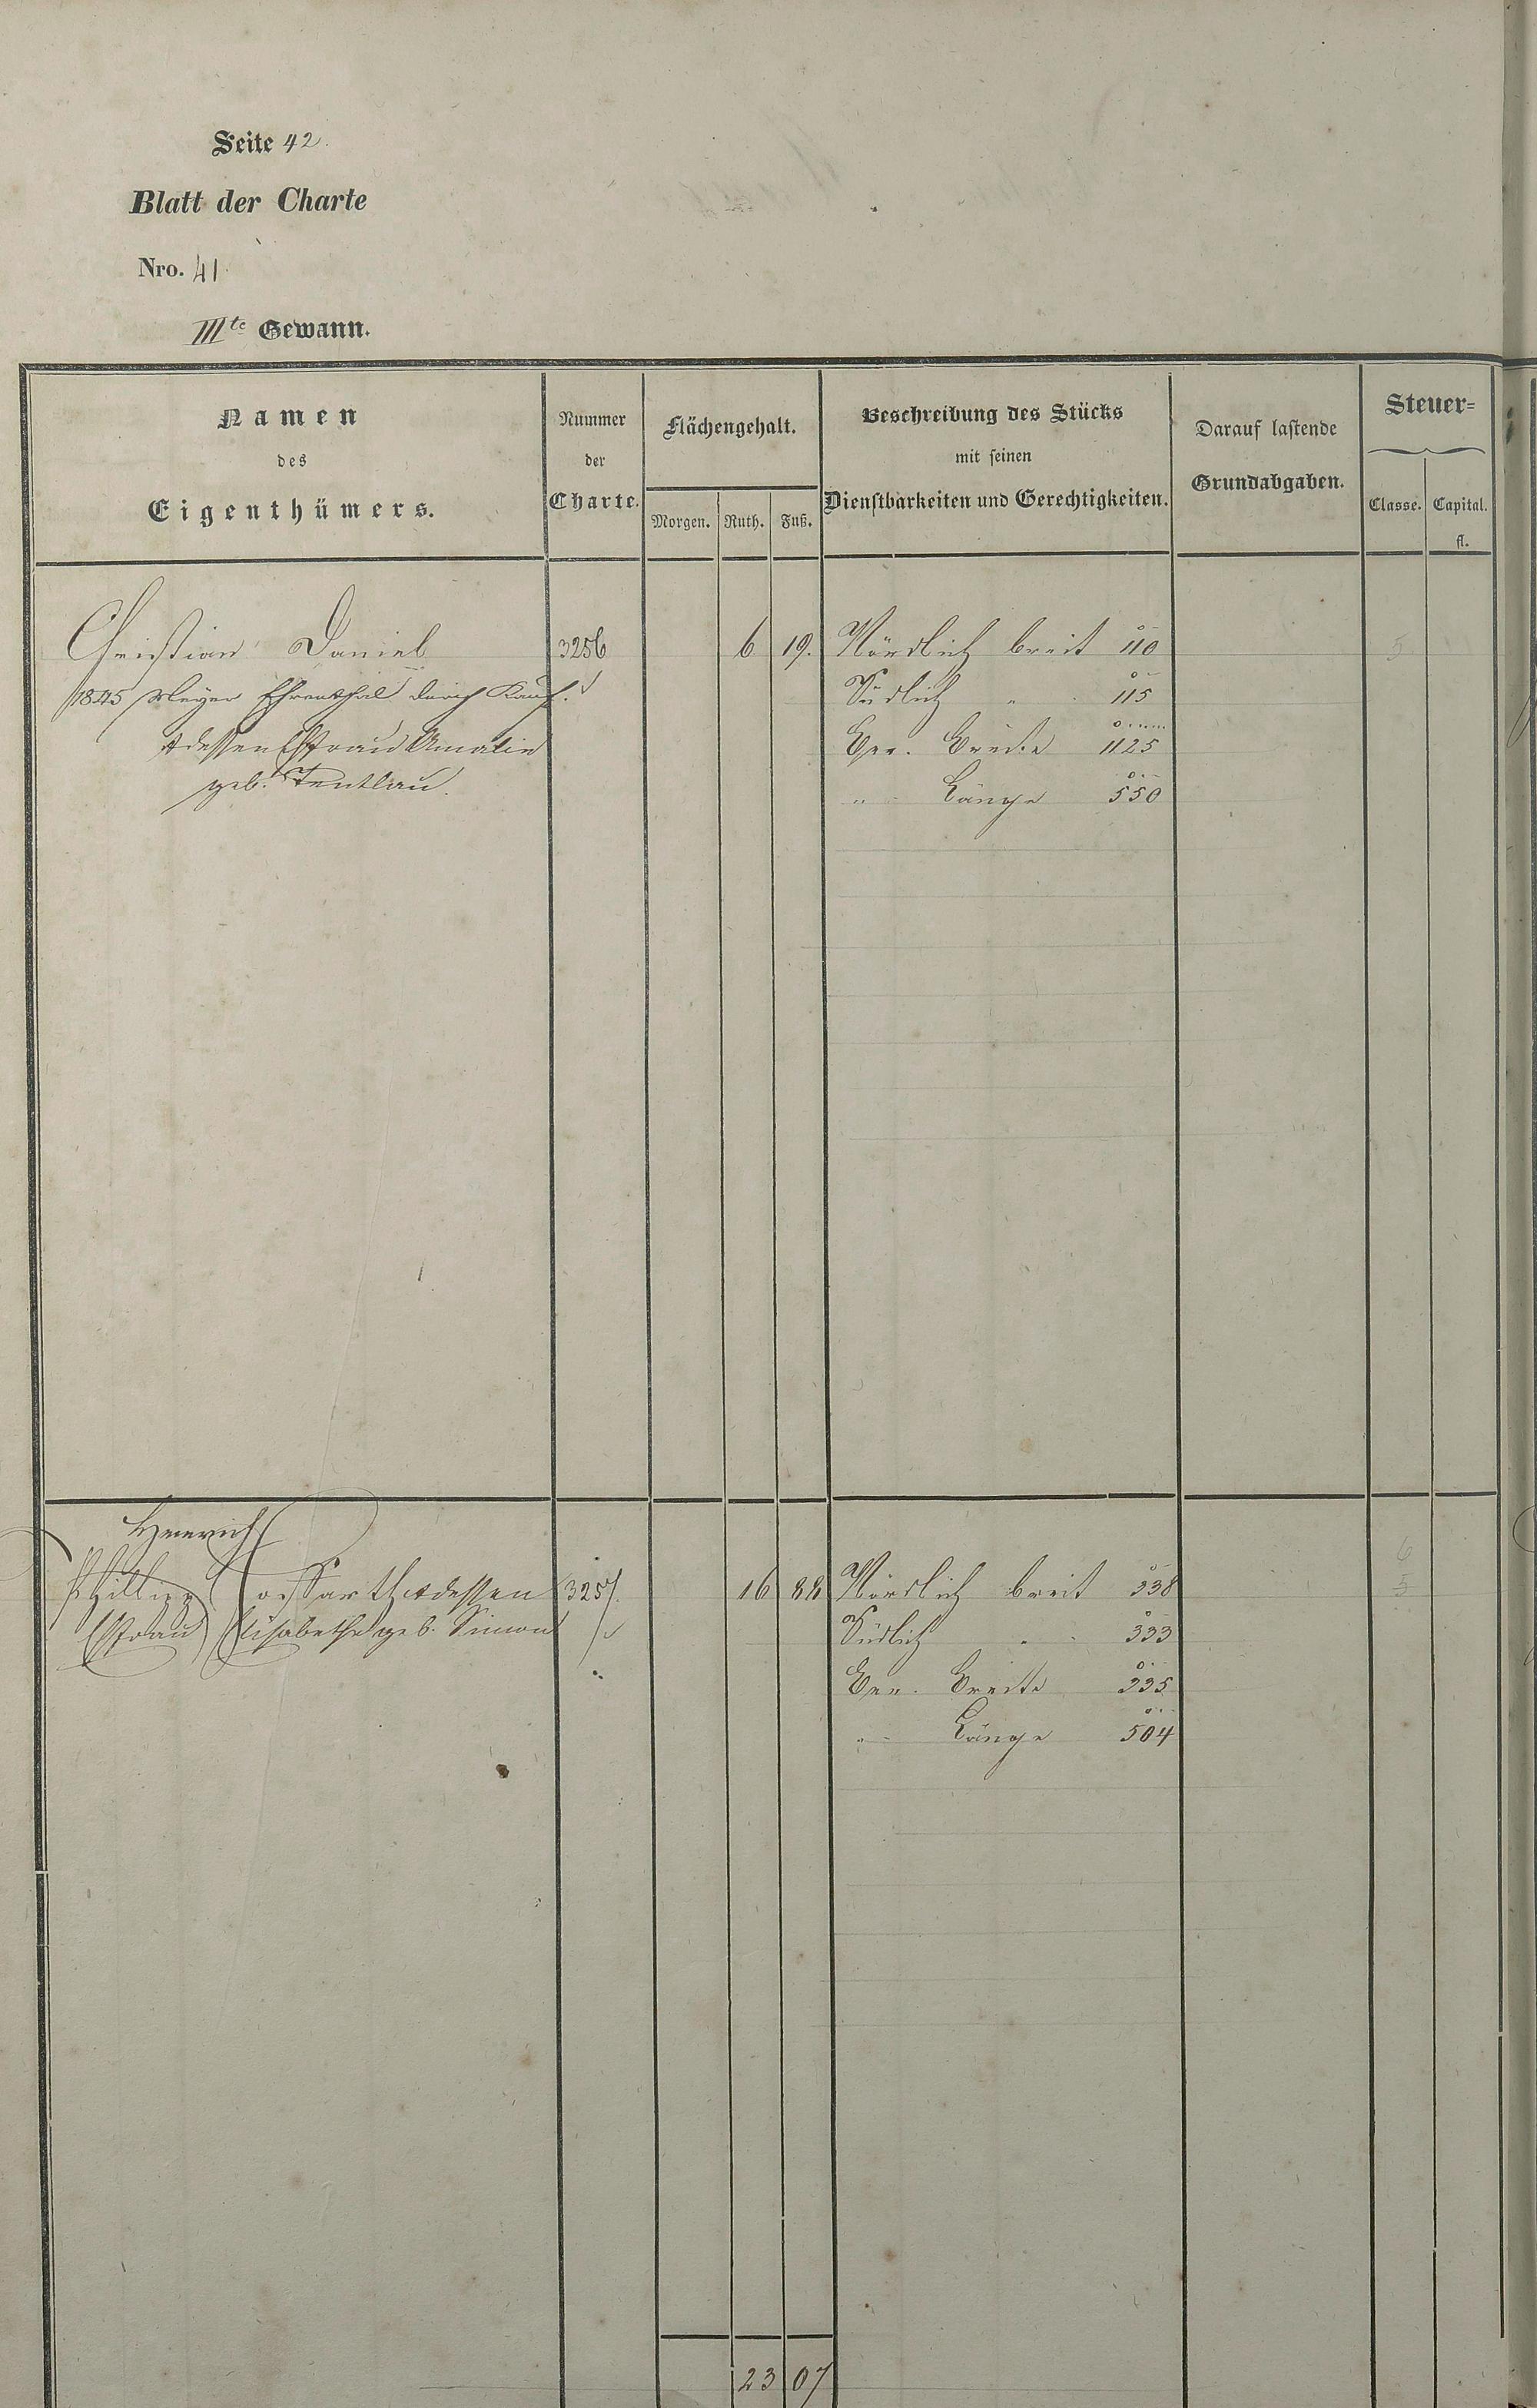 Seite 42.
Blatt der Charte
Nro. 41.
IIIte Gewann.
Namen
des
Eigenthümers.
Nummer
der
Charte.
Flächengehalt.
Morgen. Ruth. Fuß.
Beschreibung des Stücks
mit seinen
Dienstbarkeiten und Gerechtigkeiten.
Darauf lastende
Grundabgaben.
Steuer-
Classe. Capital.
fl.
Christian Daniel 3256 6 19. Nördlich breit 110 5
1845 Meyer Ehrenthal durch Kauf. Südlich " 115
& dessen Ehfrau Amalie Ger. Breite 1125
geb. Tentlau. " Länge 550
Heinrich 6
Philipp Cossarth & dessen 3257. 16 88 Nördlich breit 338 5
Ehfrau Elisabethe geb. Simon Südlich " 333
Ger. Breite 335
" Länge 504
23 07